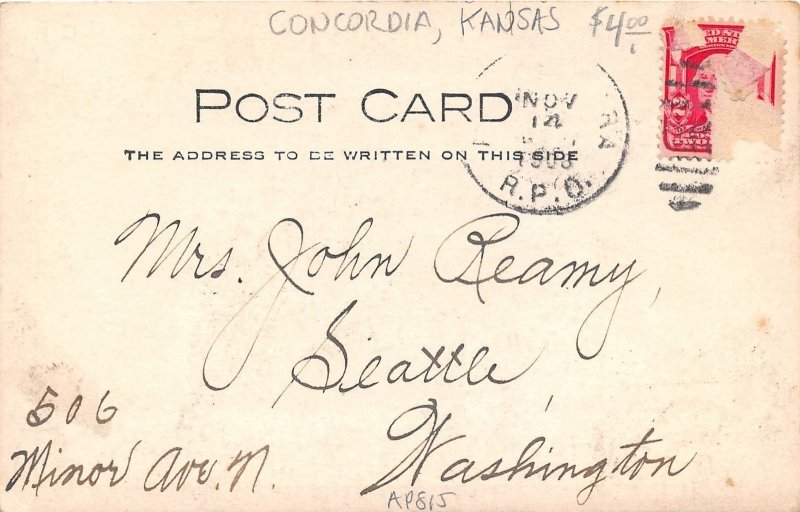 CONCORDIA, KANSAS $4.00
POST CARD
THE ADDRESS TO BE WRITTEN ON THIS SIDE
NOV
14
R.P.O.
Mrs. John Reamy,
Seattle,
Washington
506
Minor Ave. N.
AP815